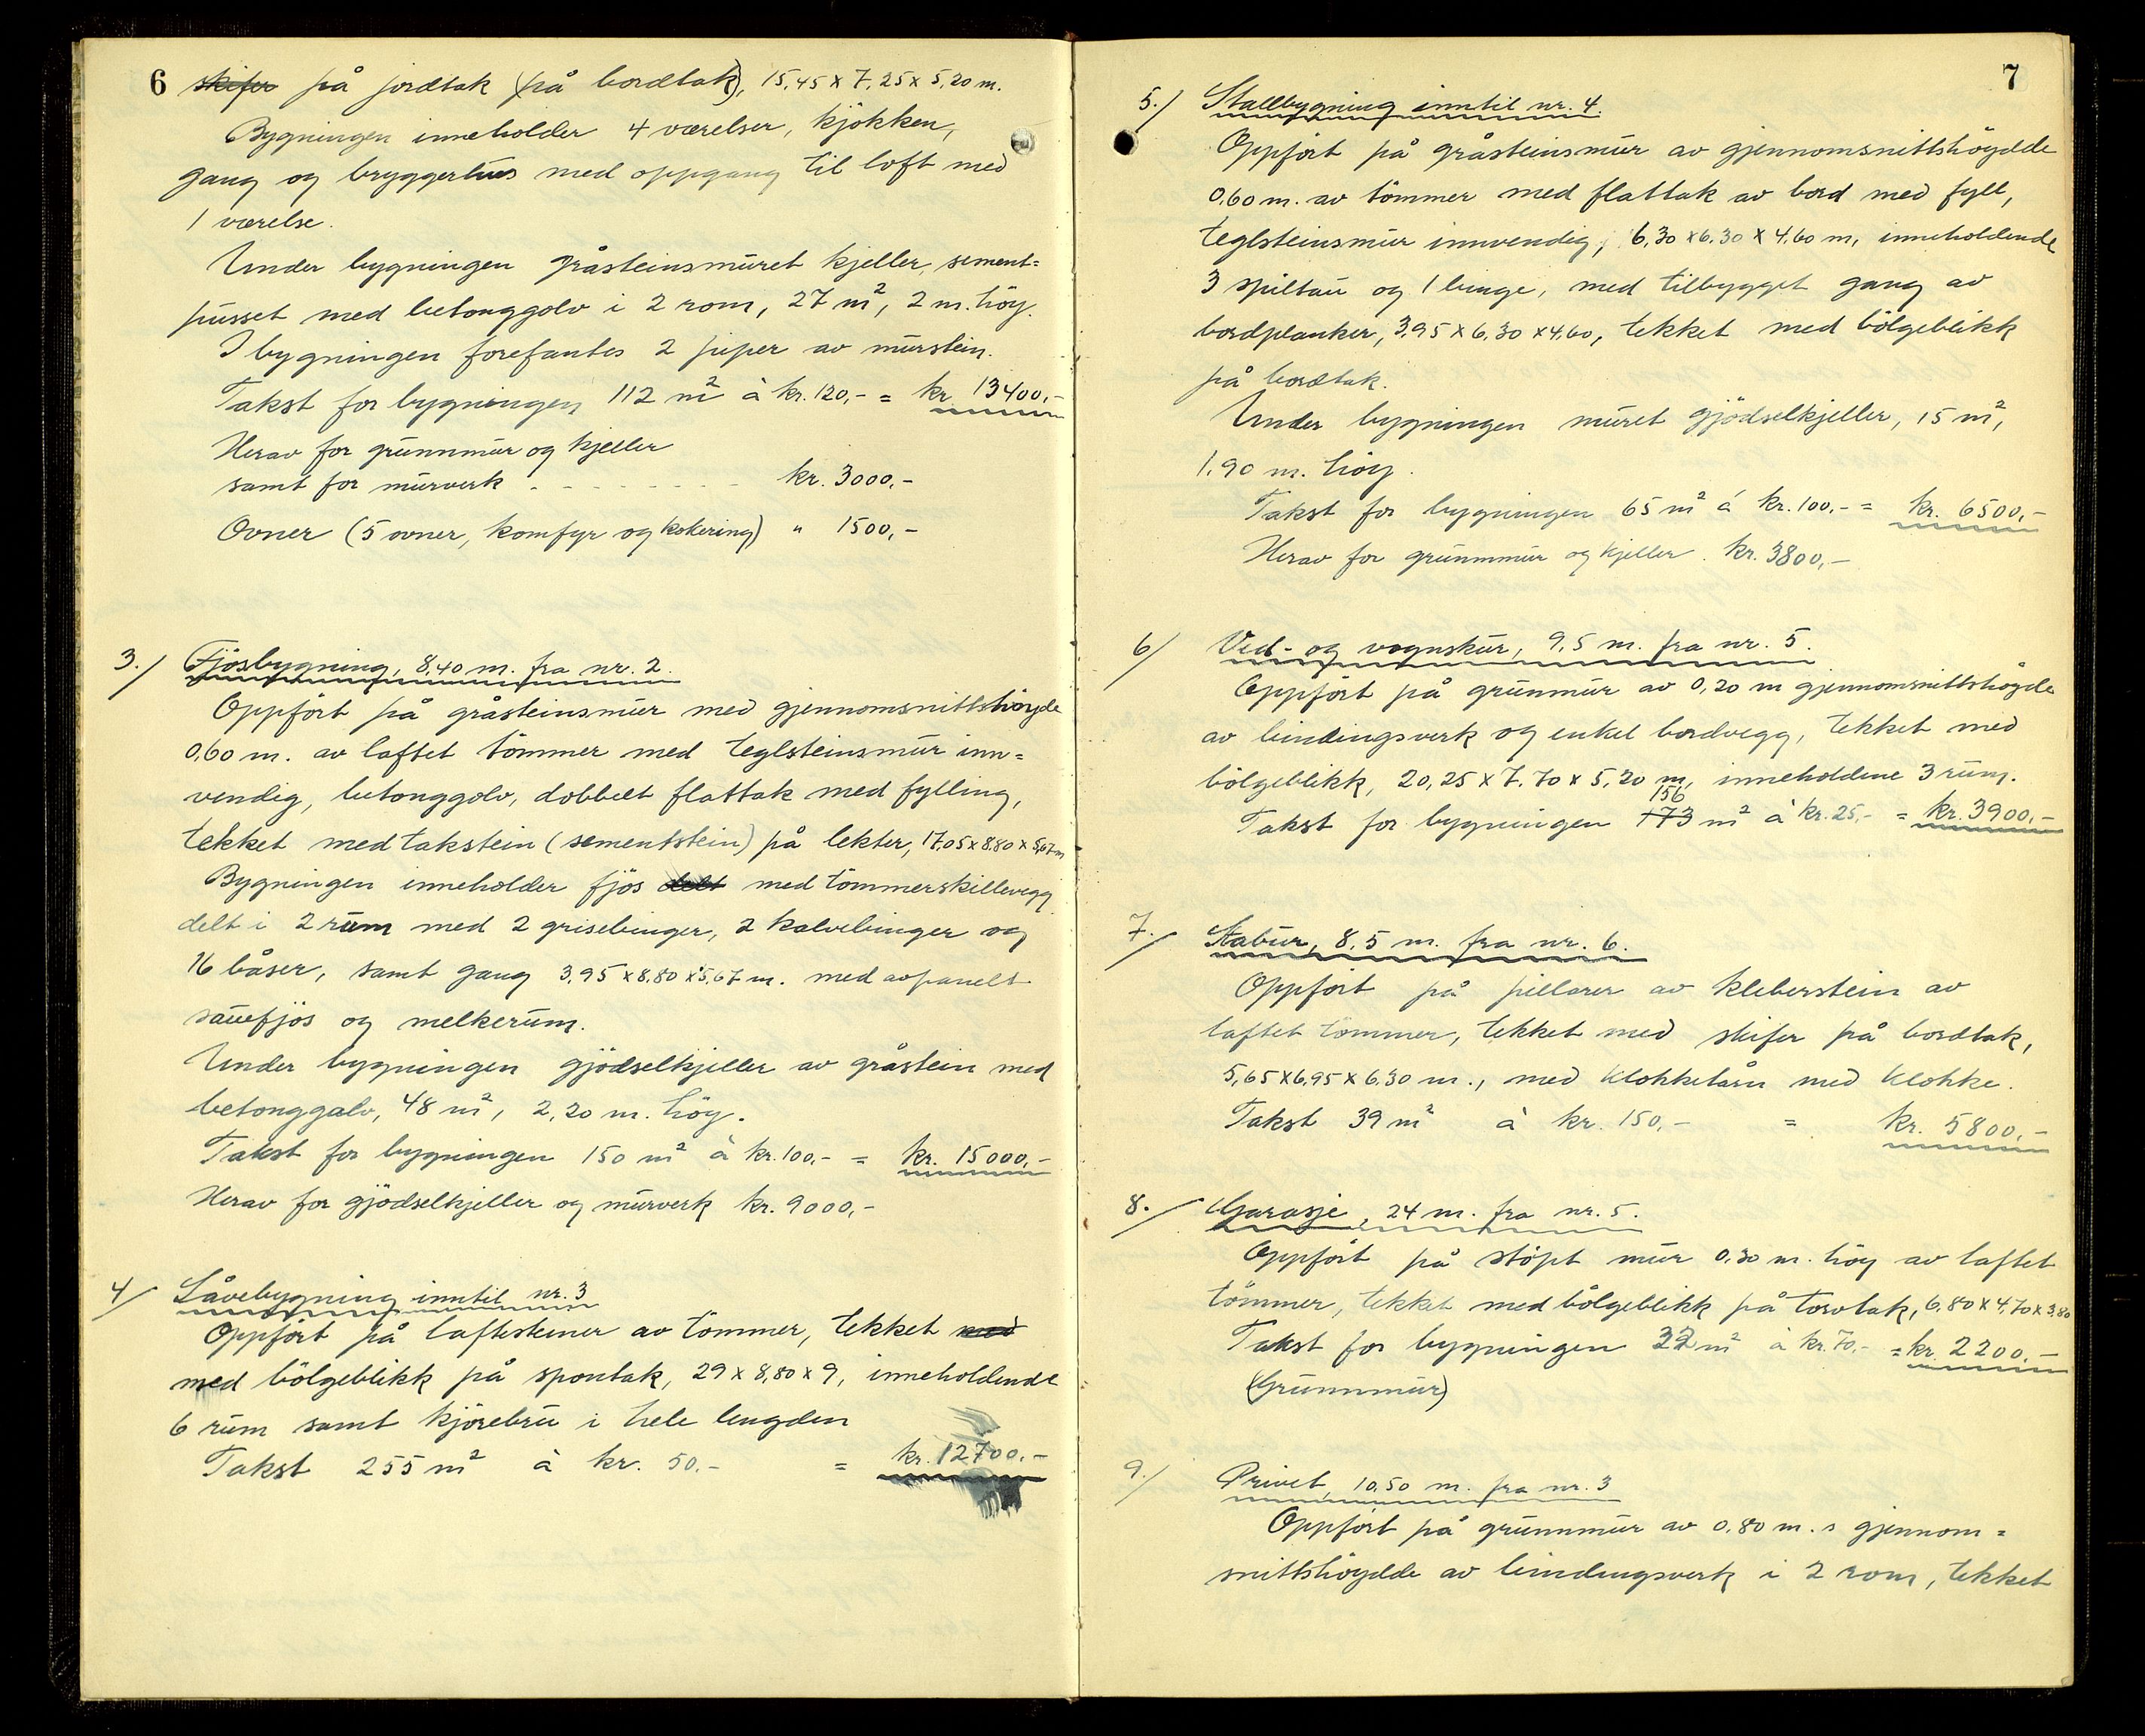 6
skifer på jordtak (på bordtak), 15,45 x 7,25 x 5,20 m.
Bygningen inneholder 4 værelser, kjökken,
gang og bryggerhus med oppgang til loft med
1 værelse.
Under bygningen gråsteinsmuret kjeller, sement=
pusset med betonggolv i 2 rom, 27 m², 2 m. höy.
I bygningen forefantes 2 piper av murstein.
Takst for bygningen 112 m² à kr. 120,- = kr. 13400,-
Herav for grunnmur og kjeller
samt for murverk - - - - - - - kr. 3000,-
Ovner (5 ovner, komfyr og kokering) " 1500,-
3./ Fjösbygning, 8,40 m. fra nr. 2.
Oppfört på gråsteinsmur med gjennomsnittshöyde
0,60 m. av laftet tömmer med teglsteinsmur inn=
vendig, betonggolv, dobbelt flattak med fylling,
tekket med takstein (sementstein) på lekter, 17,05 x 8,80 x 5,67 m
Bygningen inneholder fjös delt med tömmerskillevegg
delt i 2 rum med 2 grisebinger, 2 kalvebinger og
16 båser, samt gang 3,95 x 8,80 x 5,67 m. med avpanelt
sauefjös og melkerum.
Under bygningen gjödselkjeller av gråstein med
betonggolv, 48 m², 2,20 m. höy.
Takst for bygningen 150 m² à kr. 100,- = kr. 15000,-
Herav for gjödselkjeller og murverk kr. 9000,-
4/ Låvebygning inntil nr. 3
Oppfört på laftesteiner av tömmer, tekket med
med bölgeblikk på spontak, 29 x 8,80 x 9, inneholdende
6 rum samt kjörebru i hele lengden
Takst 255 m² à kr. 50,- = kr. 12700,-
7
5./ Stallbygning inntil nr. 4.
Oppfört på gråsteinsmur av gjennomsnittshöydde
0,60 m. av tömmer med flattak av bord med fyll,
teglsteinsmur innvendig, 6,30 x 6,30 x 4,60 m, inneholdende
3 spiltau og 1 binge, med tilbygget gang av
bordplanker, 3,95 x 6,30 x 4,60, tekket med bölgeblikk
på bordtak.
Under bygningen muret gjödselkjeller, 15 m²,
1,90 m. höy.
Takst for bygningen 65 m² á kr. 100,- = kr. 6500,-
Herav for grunnmur og kjeller. kr. 3800,-
6/ Ved- og vognskur, 9,5 m. fra nr. 5.
Oppfört på grunmur av 0,20 m gjennomsnittshögde
av bindingsverk og enkel bordvegg, tekket med
bölgeblikk, 20,25 x 7,70 x 5,20 m, inneholdene 3 rum.
156
Takst for bygningen 173 m² à kr. 25,- = kr. 3900,-
7./ Stabur, 8,5 m. fra nr. 6.
Oppfört på pillarer av kleberstein av
laftet tömmer, tekket med skifer på bordtak,
5,65 x 6,95 x 6,30 m., med klokketårn med klokke.
Takst 39 m² à kr. 150,- = kr. 5800,-
8./ Garasje, 24 m. fra nr. 5.
Oppfört på stöpt mur 0,30 m. höy av laftet
tömmer, tekket med bölgeblikk på torvtak, 6,80 x 4,70 x 3,80
Takst for bygningen 32 m² à kr. 70,- = kr. 2200,-
(Grunnmur)
9./ Privet, 10,50 m. fra nr. 3
Oppfört på grunnmur av 0,80 m.s gjennom=
snittshöydde av bindingsverk i 2 rom, tekket